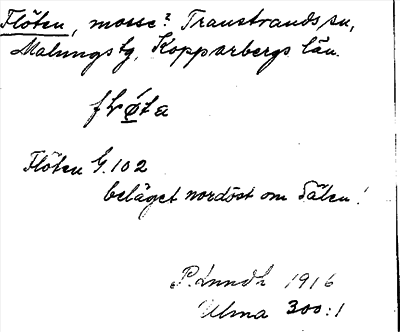 Flöten, mosse? Transtrands sn,
Malungs tg, Kopparbergs län.
Flöten G. 102
beläget nordöst om Sälen!
P. Lundh 1916
Ulma 300:1